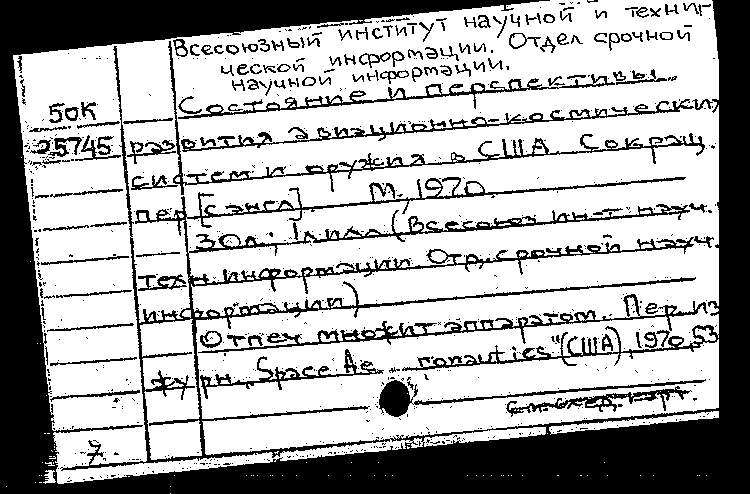 Всесоюзный институт научной и техни-
ческой информации. Отдел срочной
научной информации.
50К
Состояние и перспективы
25745
развития авиационно-космических
систем и оружия в США Сокращ.
пер [с англ]. М, 1970.
30л.; 1л илл (Всесоюз ин-т науч.
техн. информации Отд. срочной науч.
информации)
Отпеч множит аппаратом. Пер из
журн. "Space Ae ronautics" (США), 1970, 53
см. след. карт.
7.